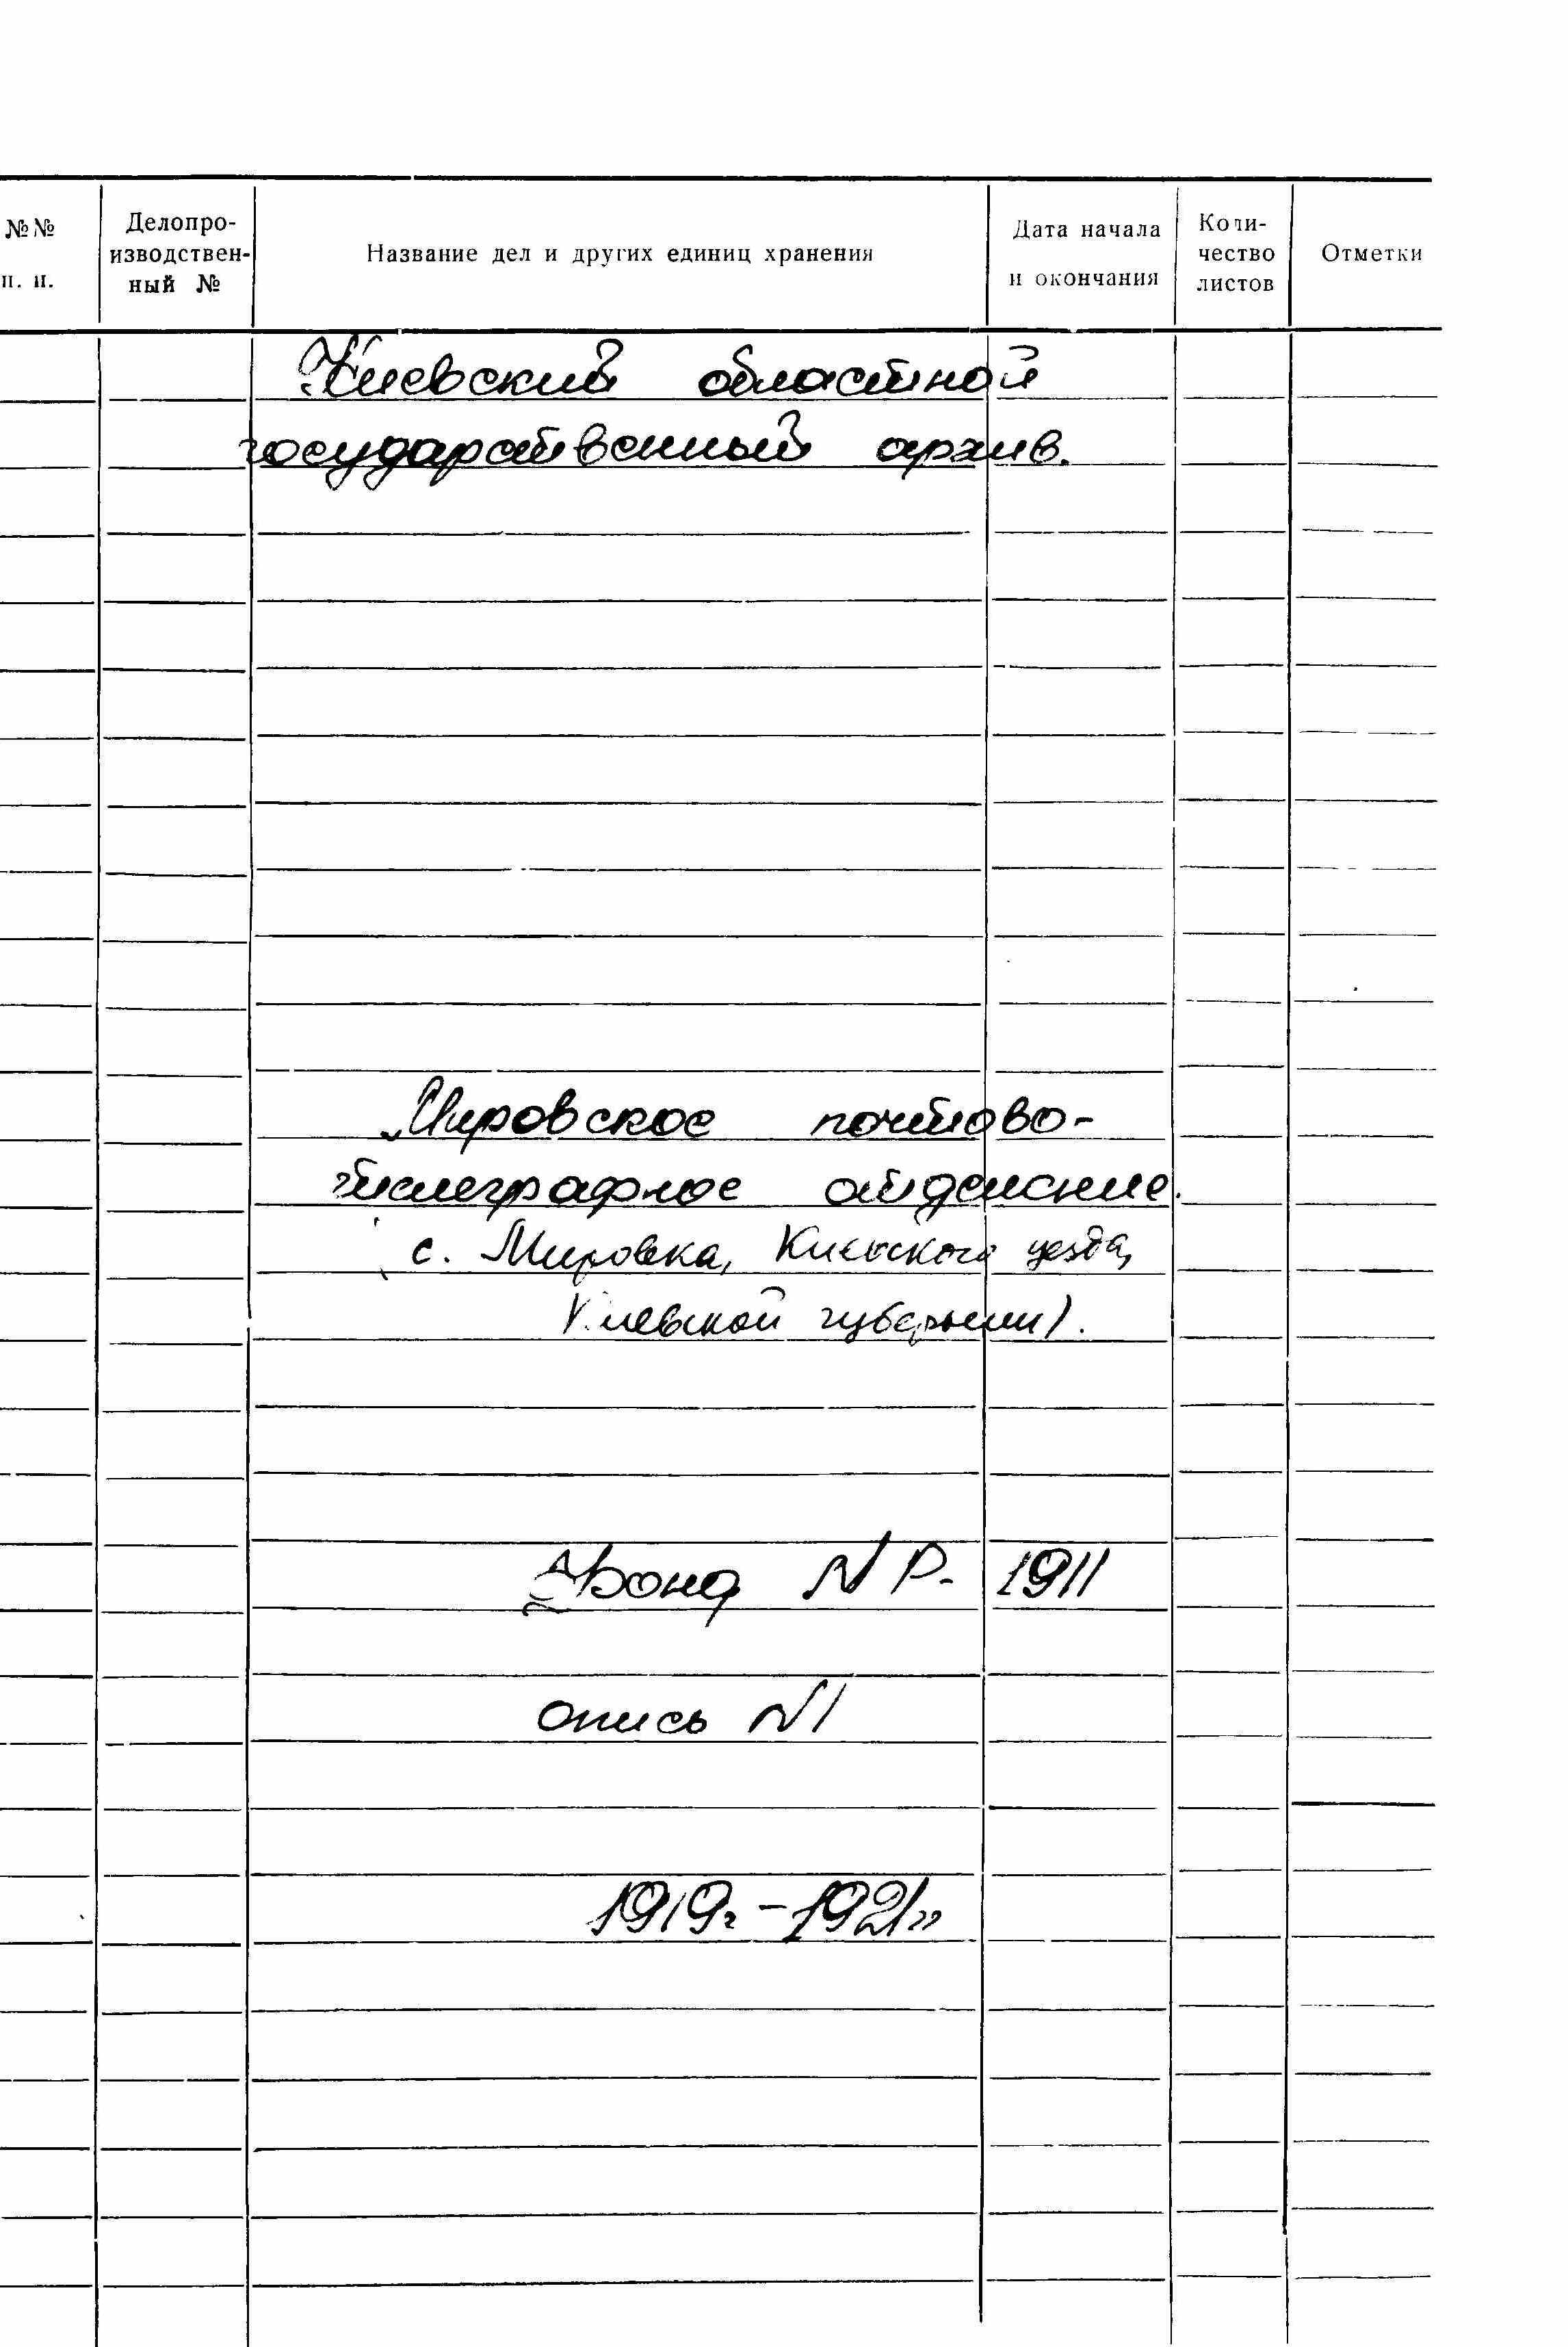 №№ п. п.
Делопро-
изводствен-
ный №
Название дел и других единиц хранения
Дата начала
и окончания
Коли-
чество
листов
Отметки
Киевский областной
государственный архив.
„Мировское почтово-
телеграфное отделение.
(с. Мировка, Киевского уезда,
Киевской губернии).
Фонд N Р-1911
опись N1
1919г-1921г